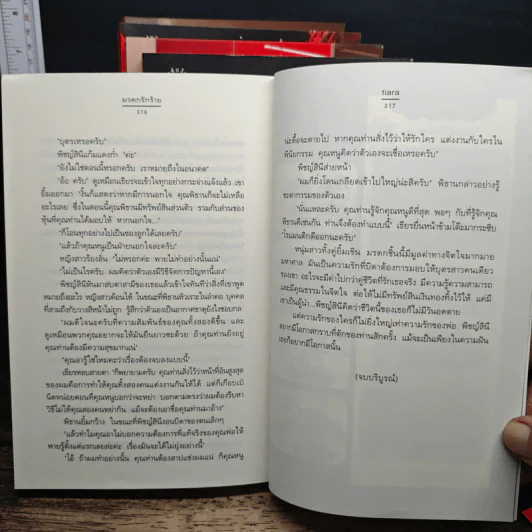 มรดกรักร้าย
316
"บุตรเหรอครับ"
พิชญ์สินีแก้มแดงก่ำ "ค่ะ"
"ยังไม่ใช่ตอนนี้หรอกครับ เราหมายถึงในอนาคต"
"อ้อ ครับ" ดูเหมือนเธียรจะเข้าใจทุกอย่างกระจ่างแจ้งแล้ว เขา
ยิ้มออกมา "งั้นก็แสดงว่าหากมีการนอกใจ คุณพิธานก็จะไม่เหลือ
อะไรเลย ซึ่งในตอนนี้คุณพิธานมีทรัพย์สินส่วนตัว รวมกับส่วนของ
หุ้นที่คุณท่านได้มอบให้ หากนอกใจ..."
"ก็โอนทุกอย่างไปเป็นของลูกได้เลยครับ"
"แล้วถ้าคุณหนูเป็นฝ่ายนอกใจล่ะครับ"
หญิงสาวร้องลั่น "ไม่หรอกค่ะ พายไม่ทำอย่างนั้นแน่"
"ไม่เป็นไรครับ ผมคิดว่าตัวเองมีวิธีจัดการปัญหานี้เอง"
พิชญ์สินีหันมาสบตาสามีของเธอแล้วเข้าใจทันทีว่าสิ่งที่เขาพูด
หมายถึงอะไร หญิงสาวค้อนให้ ในขณะที่พิธานหัวเราะในลำคอ บุคคล
ที่สามถึงกับวางสีหน้าไม่ถูก รู้สึกว่าตัวเองเป็นอากาศธาตุยังไงชอบกล
"ผมดีใจนะครับที่ความสัมพันธ์ของคุณทั้งสองดีขึ้น และ
ดูเหมือนพวกคุณอยากจะให้มันยืนยาวซะด้วย ถ้าคุณท่านยังอยู่
คุณท่านต้องมีความสุขมากแน่"
"คุณอารู้ใช่ไหมคะว่าเรื่องต้องจบลงแบบนี้"
เธียรหลบสายตา "ก็พยายามครับ คุณท่านสั่งไว้ว่าหน้าที่อันสูงสุด
ของผมคือการทำให้คุณทั้งสองคนแต่งงานกันให้ได้ แต่ก็เกือบเบี้
นิดหน่อยตอนที่คุณหนูบอกว่าจะหย่า บอกตามตรงว่าผมต้องรีบหา
วิธีไม่ให้คุณสองคนหย่ากัน แม้จะต้องเอาชื่อคุณท่านมาอ้าง"
พิธานยิ้มกว้าง ในขณะที่พิชญ์สินีงอนบิดาของตนเล็กๆ
"แล้วทำไมคุณอาไม่บอกความต้องการที่แท้จริงของคุณพ่อให้
พายรู้ตั้งแต่แรกเลยล่ะคะ เรื่องมันจะได้ไม่ยุ่งอย่างนี้"
"โอ๊ ถ้าผมทำอย่างนั้น คุณท่านต้องสาปแช่งผมแน่ ก็คุณหนู
tiara
317
น่ะดื้อจะตายไป หากคุณท่านสั่งไว้ว่าให้รักใคร แต่งงานกับใครใน
พินัยกรรม คุณหนูคิดว่าตัวเองจะเชื่อเหรอครับ"
พิชญ์สินีส่ายหน้า
"ผมก็ยิ่งโดนเกลียดเข้าไปใหญ่น่ะสิครับ" พิธานกล่าวอย่างรู้
ชะตากรรมของตัวเอง
"นั่นแหละครับ คุณท่านรู้จักคุณหนูดีที่สุด พอๆ กับที่รู้จักคุณ
พิธานดีเช่นกัน ท่านจึงต้องทำแบบนี้" เธียรยื่นหน้าข้ามโต๊ะมากระซิบ
"โรแมนติกดีออกนะครับ"
หนุ่มสาวทั้งคู่ยิ้มเขิน มรดกชิ้นนี้มีมูลค่าทางจิตใจมากมาย
มหาศาล มันเป็นความรักที่บิดาต้องการมอบให้บุตรสาวคนเดียว
ของเขา อะไรจะมีค่าไปกว่าคู่ชีวิตที่รักเธอจริง มีความรู้ความสามารถ
และมีคุณธรรมในจิตใจ ต่อให้ไม่มีทรัพย์สินเงินทองทิ้งไว้ให้ แต่มี
เขาเป็นผู้นำ...พิชญ์สินีคิดว่าชีวิตนี้ของเธอก็ไม่มีวันอดตาย
แต่ความรักของใครก็ไม่ยิ่งใหญ่เท่าความรักของพ่อ พิชญ์สินี
อยากมีโอกาสกราบที่ตักของท่านสักครั้ง แม้จะเป็นเพียงในความฝัน
เธอก็อยากมีโอกาสนั้น
(จบบริบูรณ์)